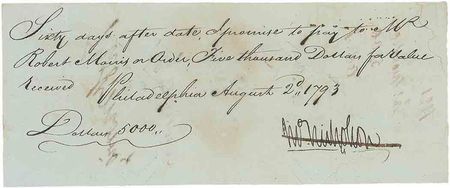 Sixty days after date, I promise to pay to Mr
Robert Morris or Order, Five thousand Dollars for Value
received Philadelphia August 2d, 1793
Dollars 5000,,
Jno. Nicholson